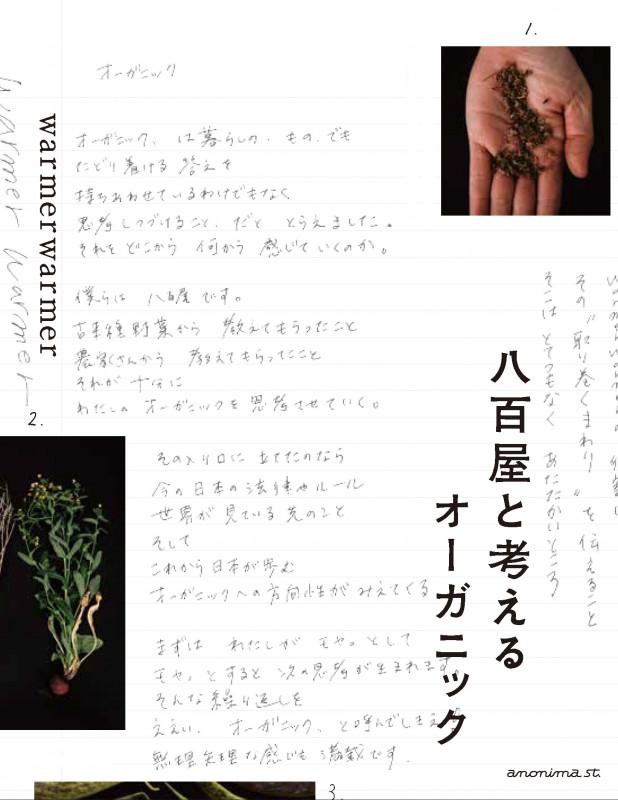 1.
オーガニック
オーガニック、は暮らしの、もの、でも
たどり着ける答えを
持ちあわせているわけでもなく
思考しつづけること、だと とらえました。
それを どこから 何から 感じていくのか。
僕らは 八百屋です。
古来種野菜から 教えてもらったこと
農家さんから 教えてもらったこと
それが 十分に
わたしの オーガニックを思考させていく。
warmerwarmer
warmer warmer
2.
その入り口に 立てたのなら
今の日本の法律やルール
世界が見ている先のこと
そして
これから日本が歩む
オーガニックへの方向性がみえてくる
まずは わたしが モヤっとして
モヤっとすると 次の思考が生まれます。
そんな繰り返しを
ええい、オーガニック、と呼んでしまえ
無理矢理な感じも 満載です。
八百屋と考える
オーガニック
その〝取り巻くまわり〟を 伝えること
そこは とてつもなく あたたかいところ
anonima st.
3.